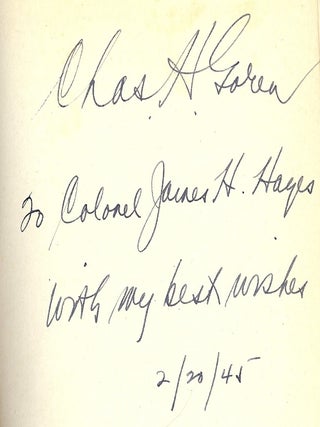 Chas. H. Goren
To Colonel James H. Hayes
With my best wishes
2/20/45